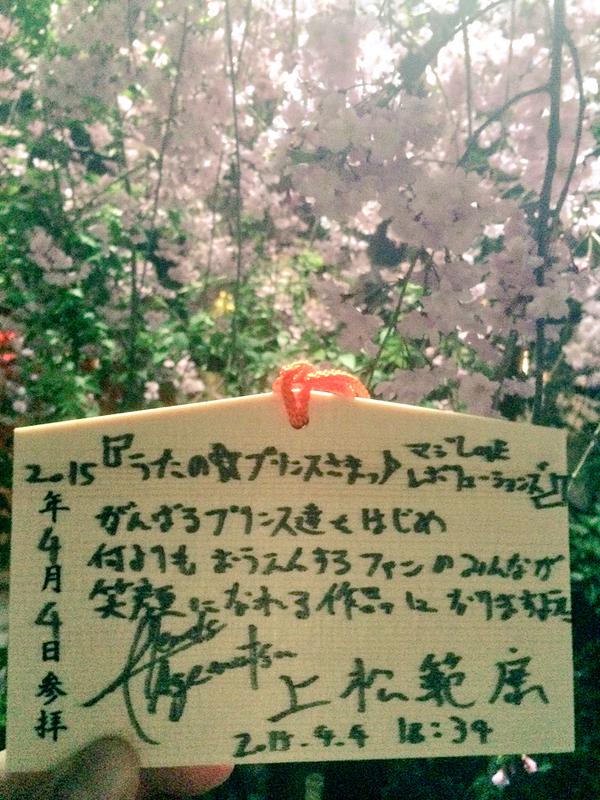 2015年4月4日参拝
『うたの☆プリンスさまっ♪
マジLOVE
レボリューションズ』
がんばるプリンス達をはじめ
何よりも おうえんする ファンのみんなが
笑顔になれる作品になりますように
上松範康
2015.4.4 18:34